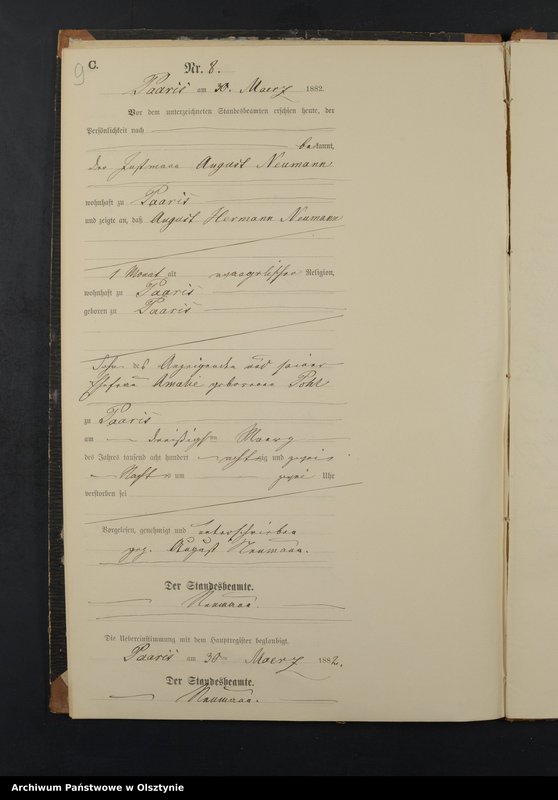 9
C.
Nr. 8.
Paaris am 30. Maerz 1882.
Vor dem unterzeichneten Standesbeamten erschien heute, der
Persönlichkeit nach
bekannt,
der Instmann August Neumann
wohnhaft zu Paaris
und zeigte an, daß August Hermann Neumann
1 Monat alt evangelischer Religion,
wohnhaft zu Paaris
geboren zu Paaris
Sohn des Anzeigenden und seiner
Ehefrau Amalie geborenen Pohl
zu Paaris
am dreißigsten Maerz
des Jahres tausend acht hundert achtzig und zwei
Nachts um zwei Uhr
verstorben sei
Vorgelesen, genehmigt und unterschrieben
gez. August Neumann.
Der Standesbeamte.
Neumann.
Die Uebereinstimmung mit dem Hauptregister beglaubigt.
Paaris am 30ten Maerz 1882.
Der Standesbeamte.
Neumann.
Archiwum Państwowe w Olsztynie